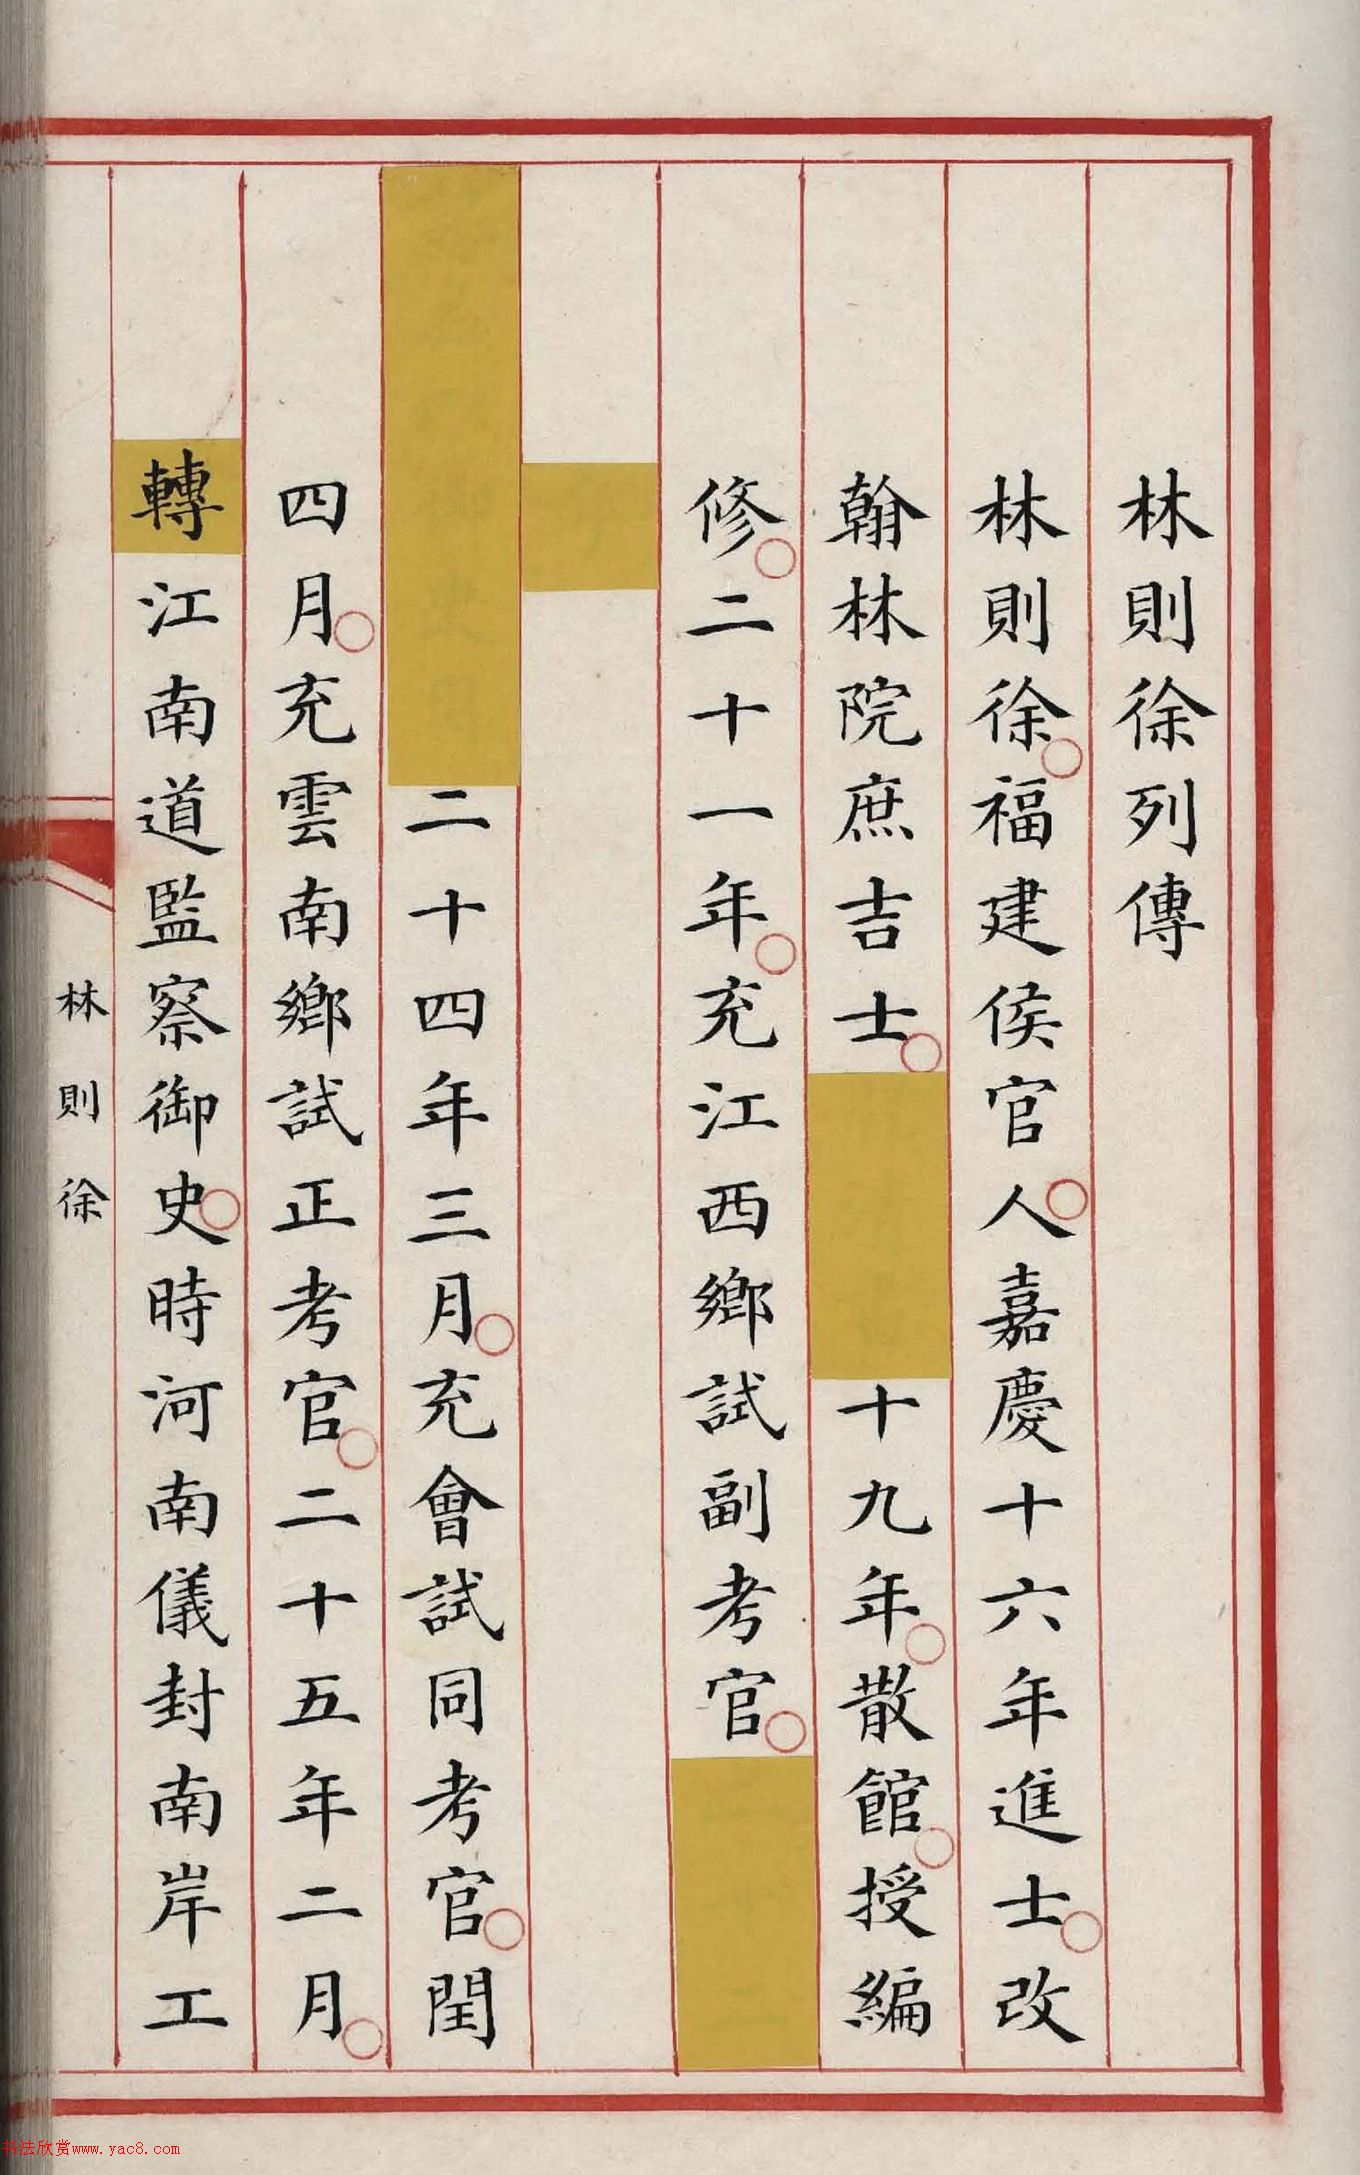 林則徐列傳
林則徐福建侯官人嘉慶十六年進士改
翰林院庶吉士十九年散館授編
修二十一年充江西鄉試副考官
二十四年三月充會試同考官閏
四月充雲南鄉試正考官二十五年二月
轉江南道監察御史時河南儀封南岸工
林則徐
书法欣赏www.yac8.com